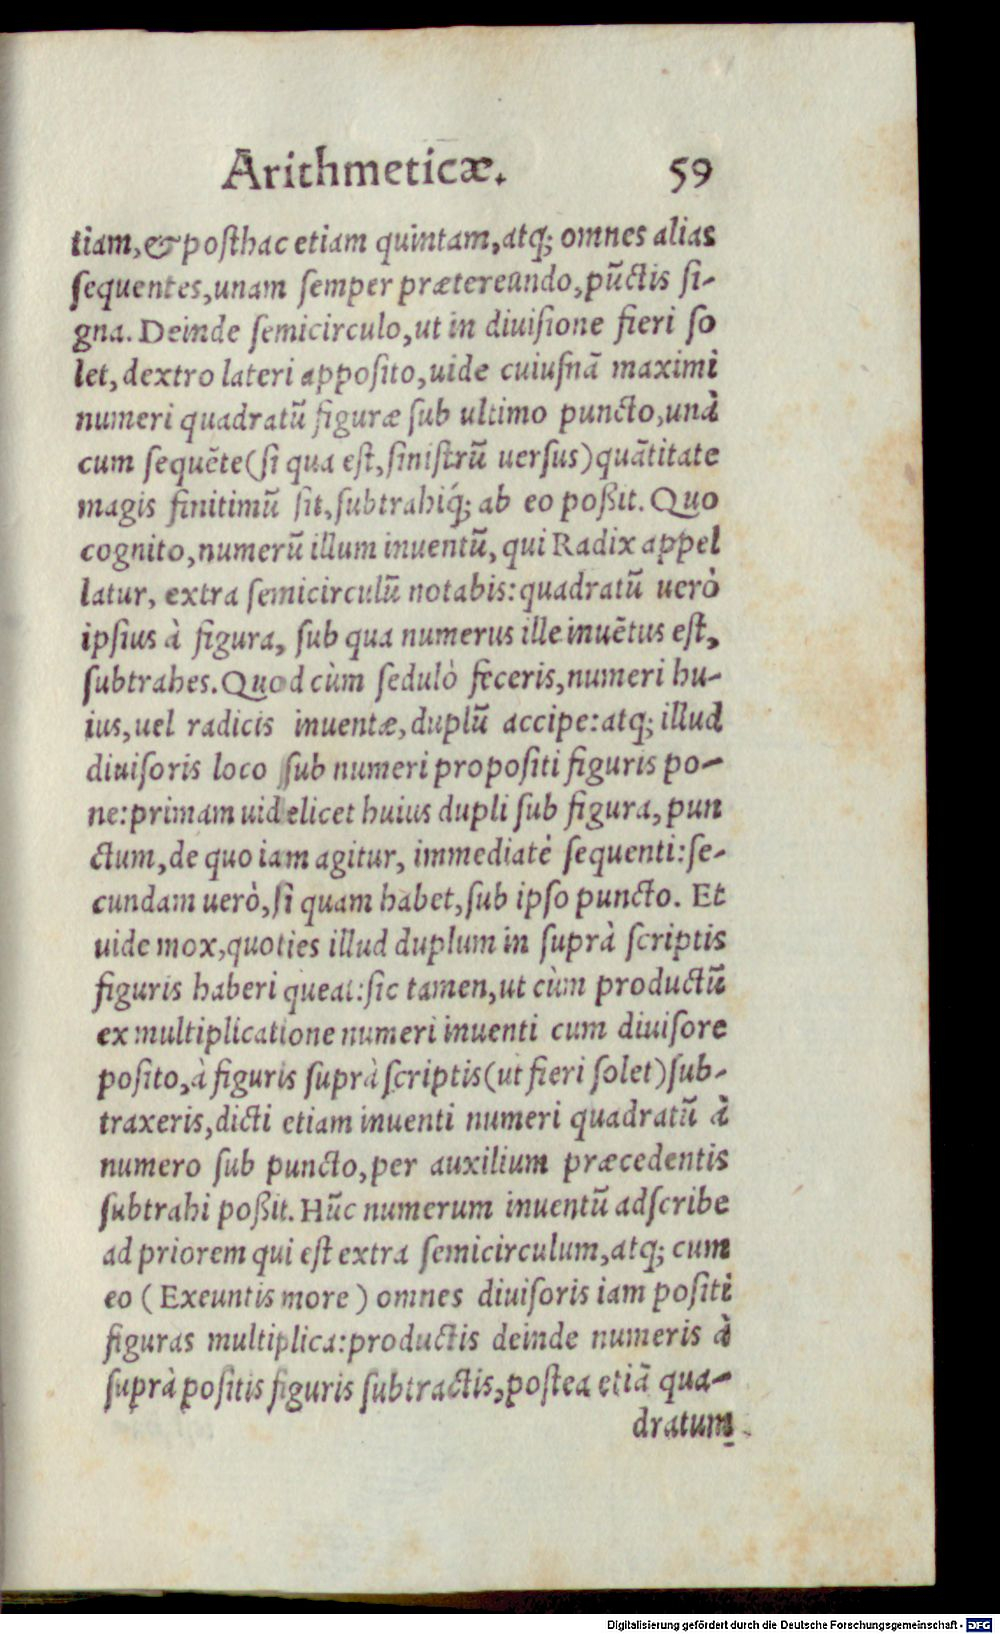 Arithmeticæ. 59
tiam, & posthac etiam quintam, atq; omnes alias
sequentes, unam semper prætereundo, pūctis si-
gna. Deinde semicirculo, ut in diuisione fieri so
let, dextro lateri apposito, uide cuiusnã maximi
numeri quadratū figuræ sub ultimo puncto, unà
cum sequẽte (si qua est, sinistrū uersus) quãtitate
magis finitimū sit, subtrahiq́; ab eo poßit. Quo
cognito, numerū illum inuentū, qui Radix appel
latur, extra semicirculū notabis: quadratū uerò
ipsius à figura, sub qua numerus ille inuẽtus est,
subtrahes. Quod cùm sedulò feceris, numeri hu-
ius, uel radicis inuentæ, duplū accipe: atq; illud
diuisoris loco sub numeri propositi figuris po-
ne: primam uidelicet huius dupli sub figura, pun
ctum, de quo iam agitur, immediatè sequenti: se-
cundam uerò, si quam habet, sub ipso puncto. Et
uide mox, quoties illud duplum in suprà scriptis
figuris haberi queat: sic tamen, ut cùm productū
ex multiplicatione numeri inuenti cum diuisore
posito, à figuris suprà scriptis (ut fieri solet) sub-
traxeris, dicti etiam inuenti numeri quadratū à
numero sub puncto, per auxilium præcedentis
subtrahi poßit. Hūc numerum inuentū adscribe
ad priorem qui est extra semicirculum, atq; cum
eo (Exeuntis more) omnes diuisoris iam positi
figuras multiplica: productis deinde numeris à
suprà positis figuris subtractis, postea etiã qua-
dratum
Digitalisierung gefördert durch die Deutsche Forschungsgemeinschaft - DFG